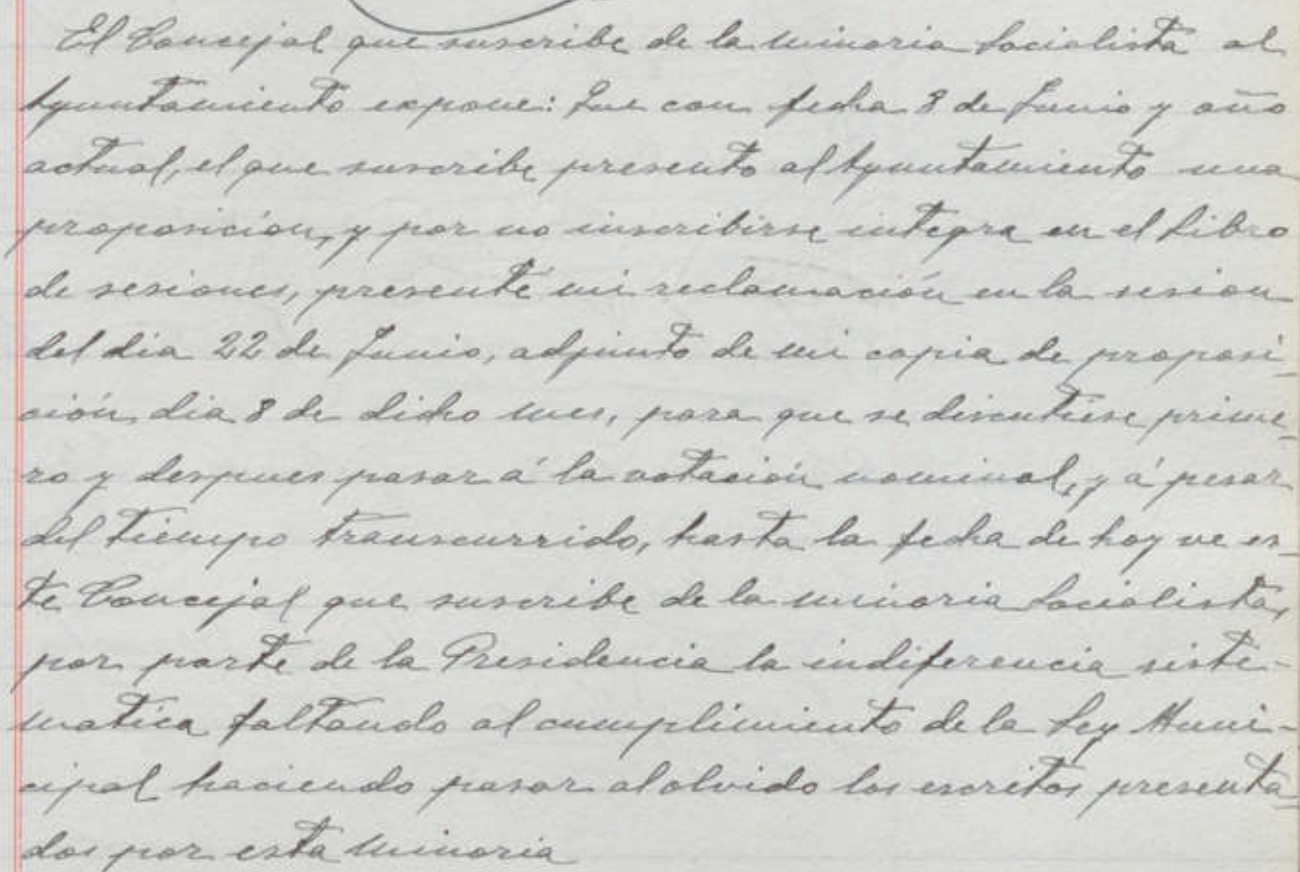 El Concejal que suscribe de la minoria Socialista al
Ayuntamiento expone: Que con fecha 8 de Junio y año
actual, el que suscribe presento al Ayuntamiento una
proposición, y por no inscribirse integra en el Libro
de sesiones, presenté mi reclamación en la sesion
del dia 22 de Junio, adjunto de mi copia de proposi-
ción dia 8 de dicho mes, para que se discutiese prime-
ro y despues pasar á la votación nominal, y á pesar
del tiempo transcurrido, hasta la fecha de hoy ve es-
te Concejal que suscribe de la minoria Socialista,
por parte de la Presidencia la indiferencia siste-
matica faltando al cumplimiento de la Ley Muni-
cipal haciendo pasar al olvido los escritos presenta-
dos por esta minoria